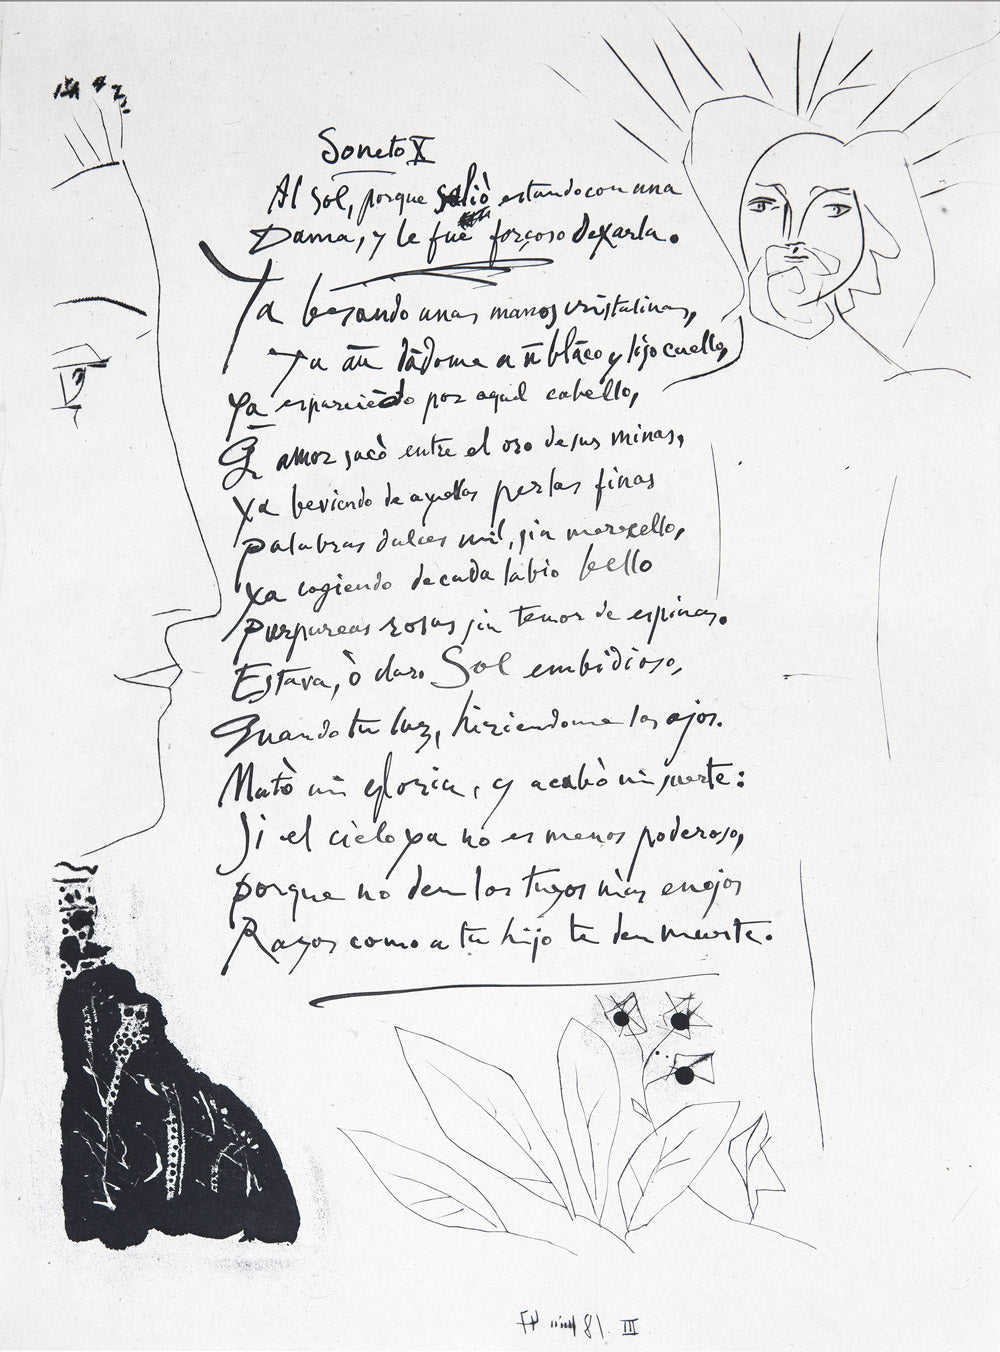 Soneto X
Al Sol, porque saliò estando con una
Dama, y le fuè forçoso dexarla.
Ya besando unas manos cristalinas,
Ya āñ dādome a ñ blāco y liso cuello,
Ya esparciēdo por aquel cabello,
Q̄ amor sacò entre el oro de sus minas,
Ya beviendo de aquellas perlas finas
palabras dulces mil, sin merecello,
Ya cogiendo de cada labio bello
purpureas rosas sin temor de espinas.
Estava, ò claro Sol embidioso,
Quando tu luz, hiriendome los ojos.
Matò mi gloria, y acabò mi suerte:
Si el cielo ya no es menos poderoso,
porque no den los tuyos màs enojos
Rayos como a tu hijo te den muerte.